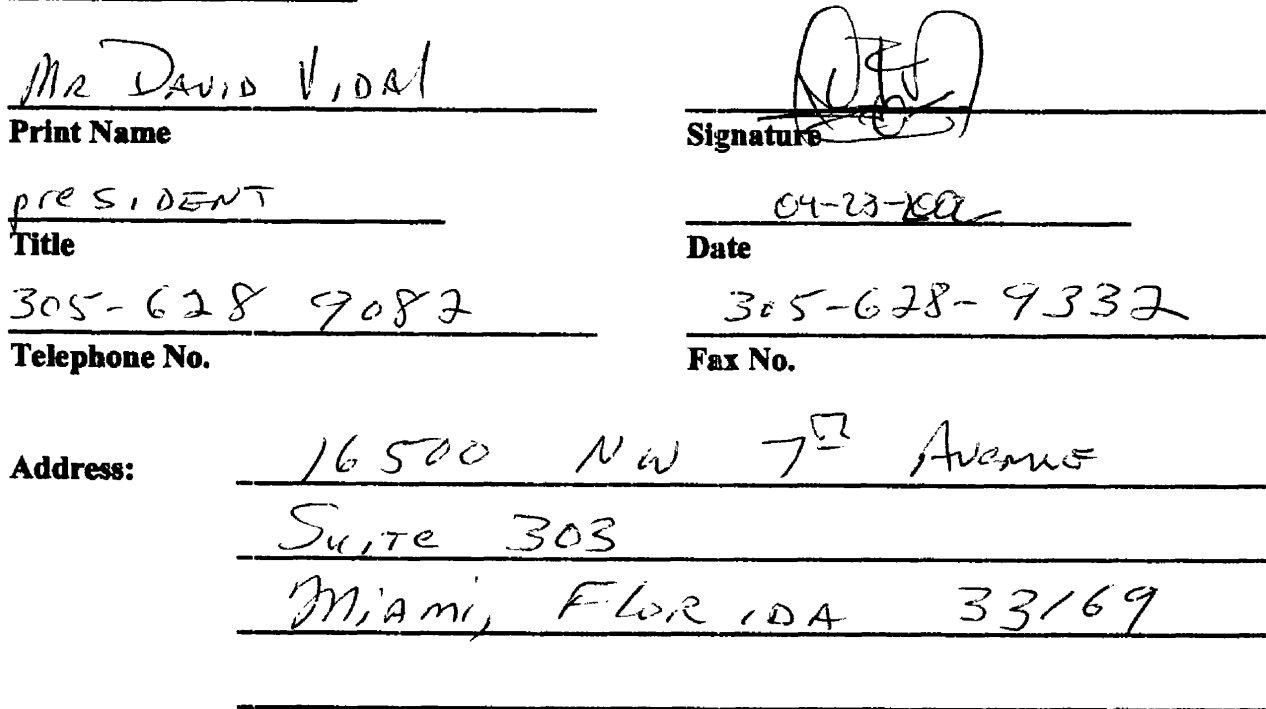 Mr David Vidal
Print Name
Signature
president
Title
04-23-
Date
305-628 9082
Telephone No.
305-628-9332
Fax No.
Address: 16500 NW 7th Avenue
Suite 303
Miami, Florida 33169